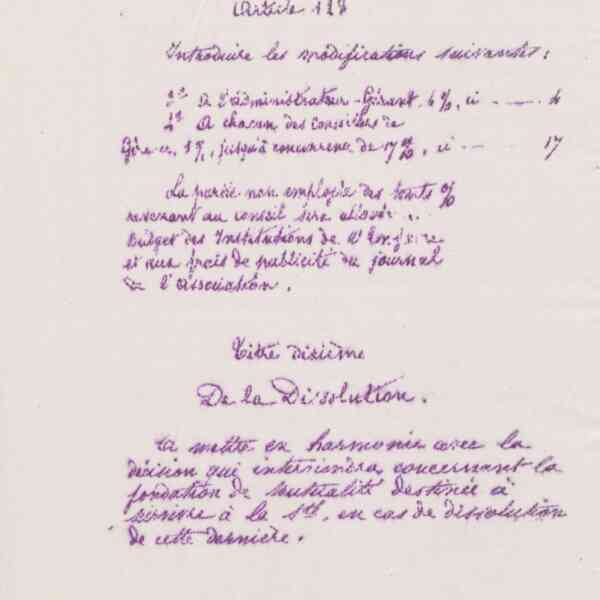 Article 128
Introduire les modifications suivantes :
3° A l'administrateur-Gérant, 4 %, ci — 4
4° A chacun des conseillers de
Gérance, 1 %, jusqu'à concurrence de 17 %, ci — 17
La partie non employée des tants %
revenant au conseil sera
Budget des Institutions de
et aux frais de publicité du journal
de l'association.
Titre dixième
De la Dissolution.
La mettre en harmonie avec la
décision qui interviendra concernant la
fondation de Mutualité destinée à
survivre à la Sté, en cas de dissolution
de cette dernière.